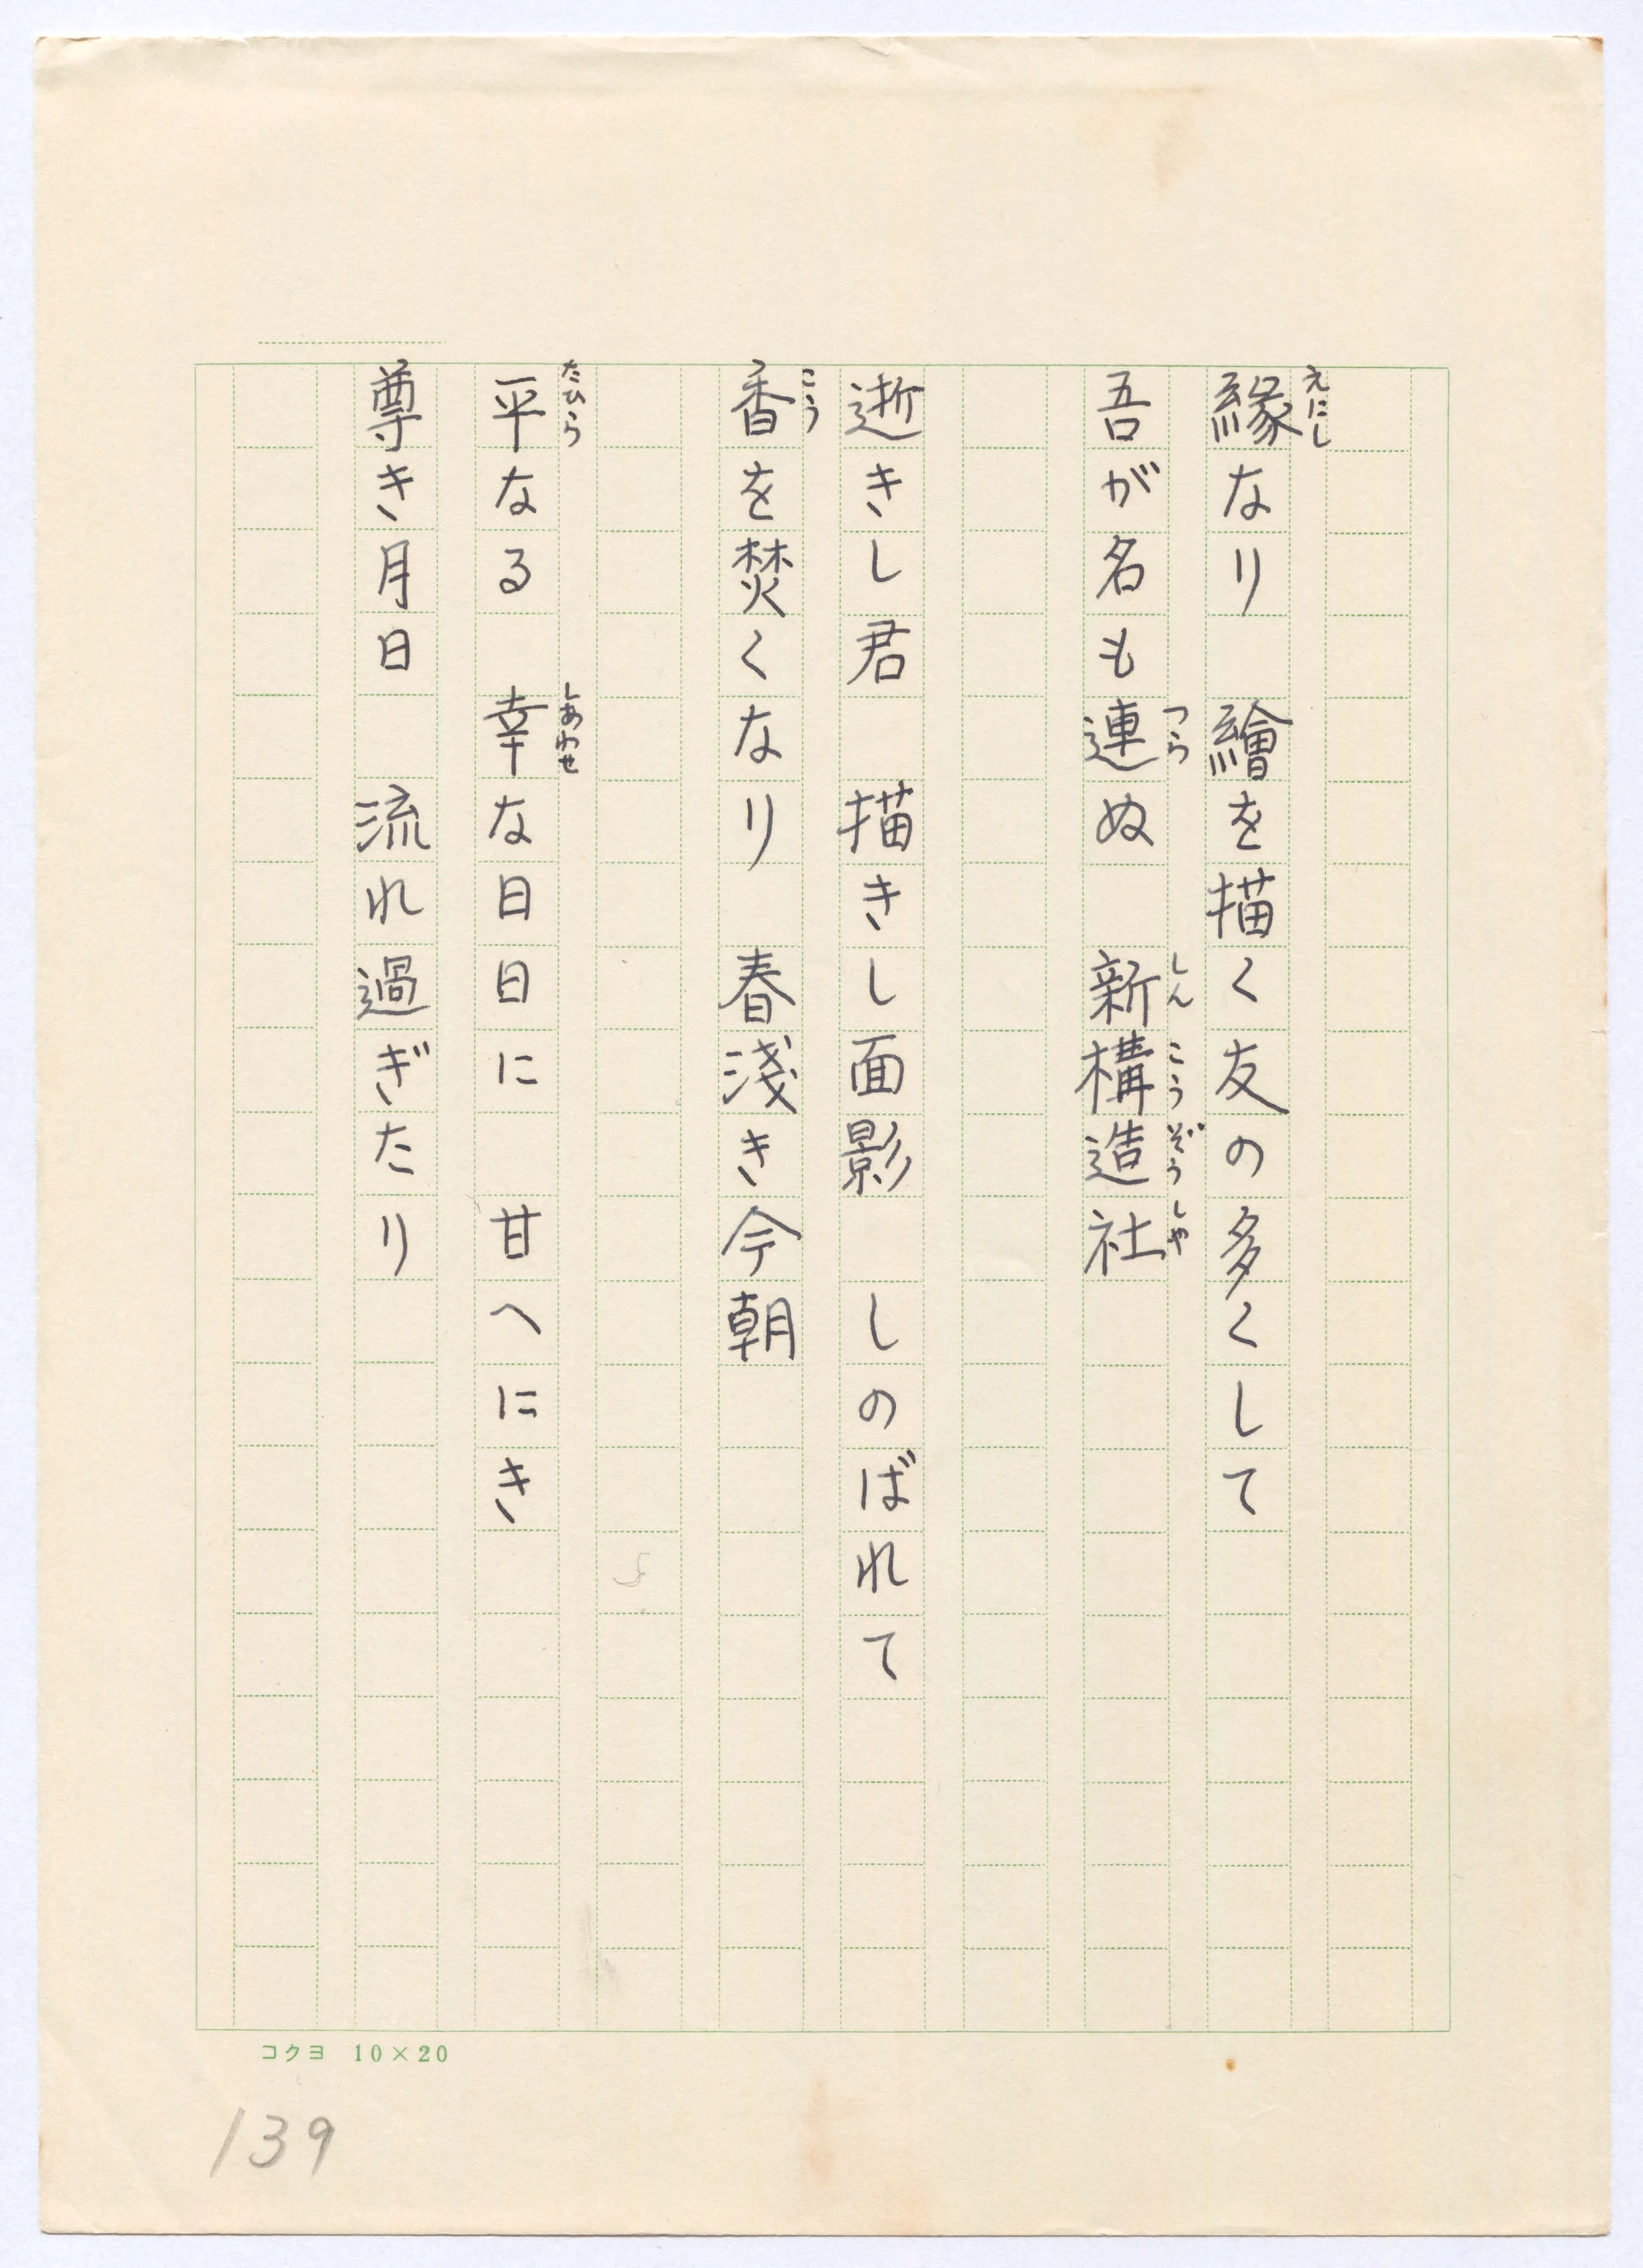 縁なり　繪を描く友の多くして
えにし
吾が名も連ぬ　新構造社
つら　しんこうぞうしや
逝きし君　描きし面影　しのばれて
香を焚くなり　春淺き今朝
こう
平なる　幸な日日に　甘へにき
たひら　しあわせ
尊き月日　流れ過ぎたり
コクヨ　10×20
139